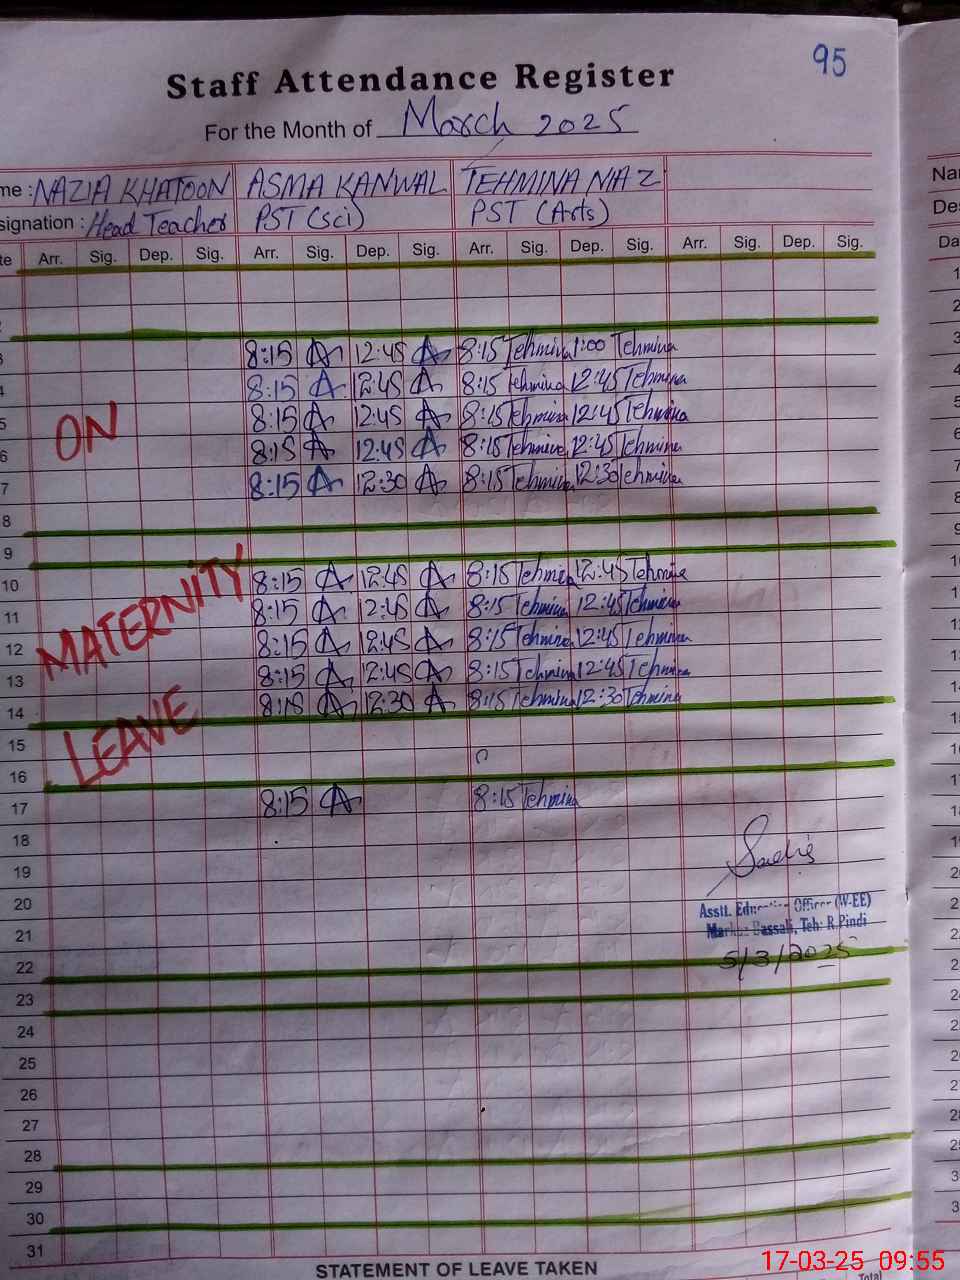 95
Staff Attendance Register
For the Month of March 2025
me : NAZIA KHATOON ASMA KANWAL TEHMINA NIAZ
signation : Head Teacher PST (Sci) PST (Arts)
te Arr. Sig. Dep. Sig. Arr. Sig. Dep. Sig. Arr. Sig. Dep. Sig. Arr. Sig. Dep. Sig.
3 8:15 A 12:45 A 8:15 Tehmina 1:00 Tehmina
4 8:15 A 12:45 A 8:15 Tehmina 12:45 Tehmina
5 8:15 A 12:45 A 8:15 Tehmina 12:45 Tehmina
ON
6 8:15 A 12:45 A 8:15 Tehmina 12:45 Tehmina
7 8:15 A 12:30 A 8:15 Tehmina 12:30 Tehmina
8
9
10 8:15 A 12:45 A 8:15 Tehmina 12:45 Tehmina
11 8:15 A 12:45 A 8:15 Tehmina 12:45 Tehmina
MATERNITY
12 8:15 A 12:45 A 8:15 Tehmina 12:45 Tehmina
13 8:15 A 12:45 A 8:15 Tehmina 12:45 Tehmina
14 8:15 A 12:30 A 8:15 Tehmina 12:30 Tehmina
LEAVE
15
16
17 8:15 A 8:15 Tehmina
18
19
20
Asstt. Education Officer (W-EE)
21
Markaz Bassali, Teh: R.Pindi
5/3/2025
22
23
24
25
26
27
28
29
30
31
STATEMENT OF LEAVE TAKEN
Total
17-03-25 09:55